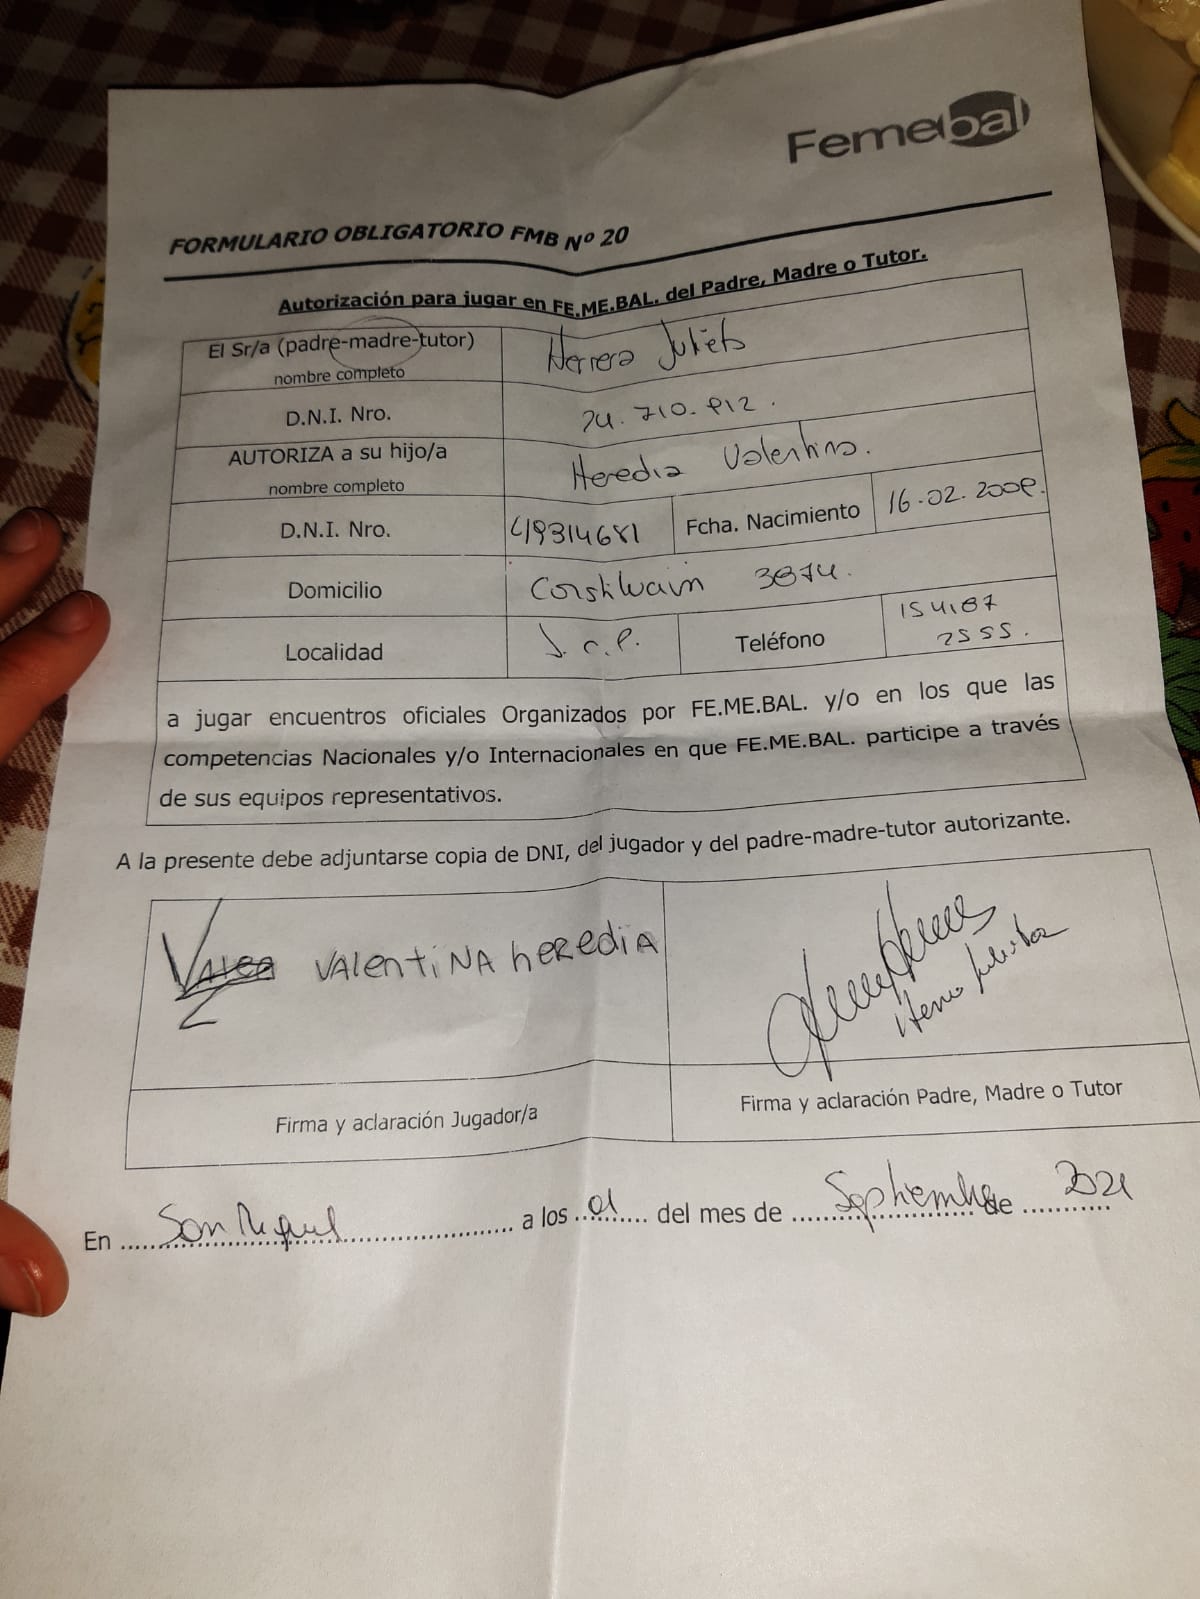 Femebal
FORMULARIO OBLIGATORIO FMB Nº 20
Autorización para jugar en FE.ME.BAL. del Padre, Madre o Tutor.
El Sr/a (padre-madre-tutor)
nombre completo
Herrera Julieta
D.N.I. Nro.
24.710.812.
AUTORIZA a su hijo/a
nombre completo
Heredia Valentina.
D.N.I. Nro.
49314681
Fcha. Nacimiento
16.02.2009.
Domicilio
3874.
Localidad
J.C.P.
Teléfono
154187
2555.
a jugar encuentros oficiales Organizados por FE.ME.BAL. y/o en los que las
competencias Nacionales y/o Internacionales en que FE.ME.BAL. participe a través
de sus equipos representativos.
A la presente debe adjuntarse copia de DNI, del jugador y del padre-madre-tutor autorizante.
VALENTINA HEREDIA
Herrera Julieta
Firma y aclaración Jugador/a
Firma y aclaración Padre, Madre o Tutor
En San Miguel a los 01 del mes de Septiembre de 2021